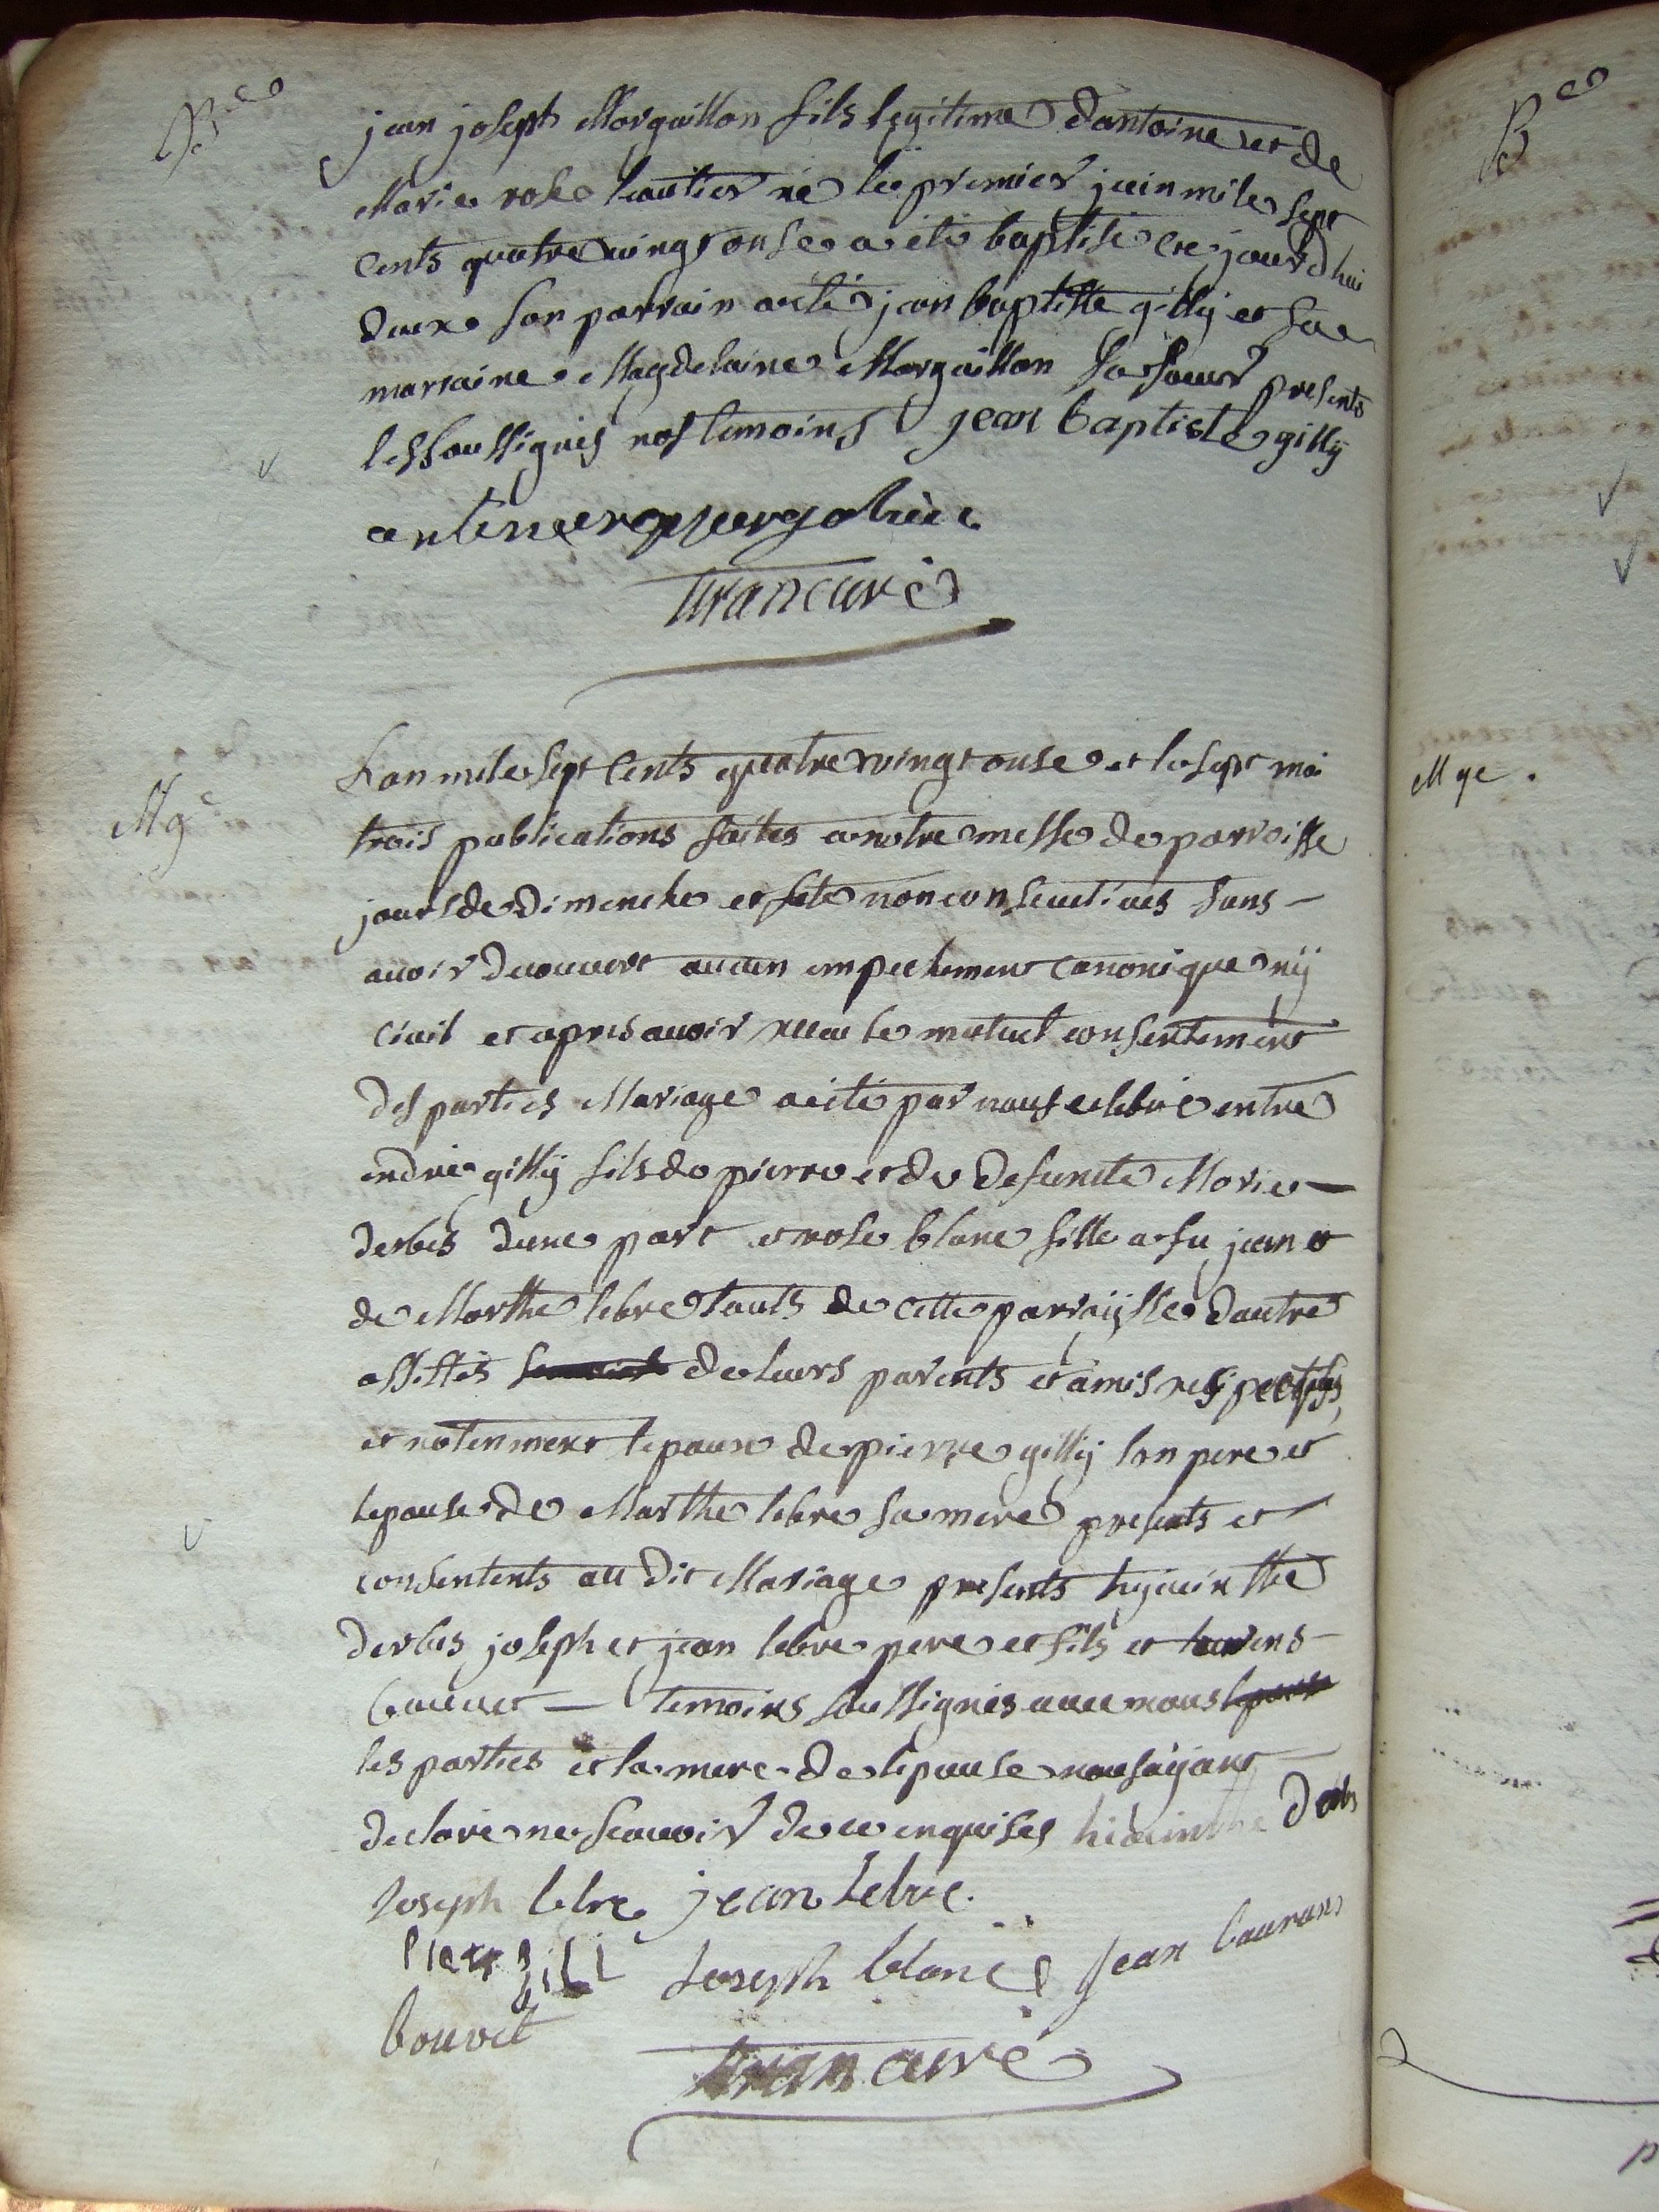 Be
jean joseph Morgaillon fils legitime d'antoine et de
Marie rose lautier né le premier juin mile sept
cents quatre vingt onse a eté baptisé ce jourdhui
deux son parrain a eté jean baptiste gilly et sa
marraine Magdelaine Morgaillon sa soeur presents
les soussignés nos temoins jean baptiste gilly
curé
Mge
L'an mile sept cents quatre vingt onse et le sept mai
trois publications faites a notre messe de parroisse
jours de dimenche et fete non consecutives sans
avoir decouvert aucun empechement canonique nij
civil et apres avoir recu le mutuel consentement
des parties Mariage a eté par nous celebré entre
endré gilly fils de pierre et de defuncte Marie
derbes dune part et rose blanc fille a fu jean et
de Marthe lebre touts de cette parroijsse dautre
assistés de leurs parents et amis respectifs,
et notenment lepoux de pierre gillij son pere et
lepouse de Marthe lebre sa mere presents et
consentents au dit Mariage presents hyacinthe
derbes joseph et jean lebre pere et fils et
bouvet temoins soussignés avec nous
les parties et la mere de lepouse nous aijant
declaré ne scavoir de ce enquises hiacinthe
Joseph lebre jean lebre
Pierre gili Joseph blanc Jean
bouvet
curé
Mge.
Be